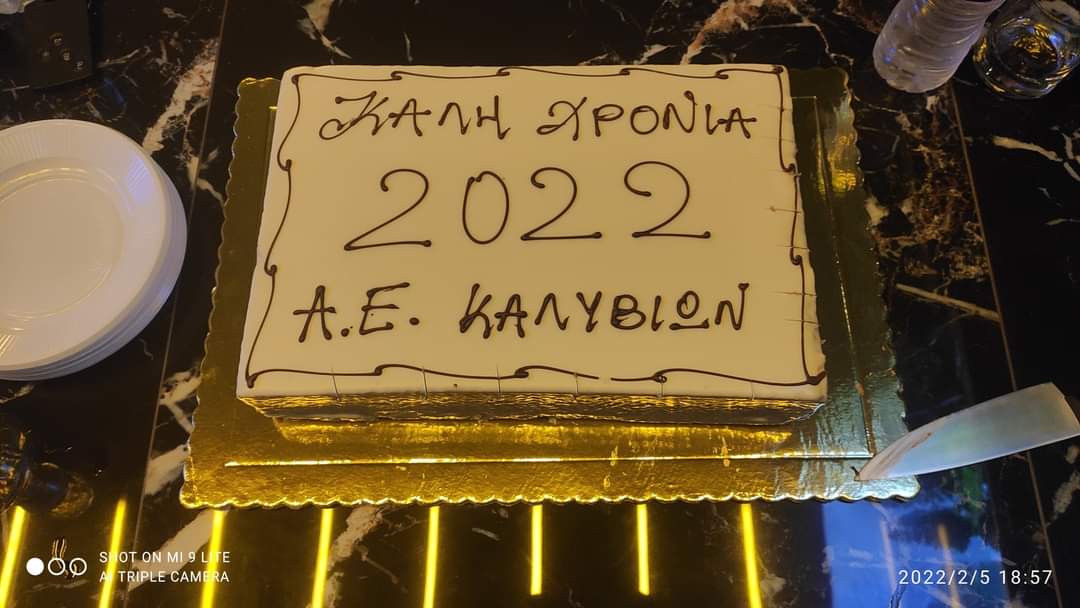 ΚΑΛΗ ΧΡΟΝΙΑ
2022
Α.Ε. ΚΑΛΥΒΙΩΝ
SHOT ON MI 9 LITE
AI TRIPLE CAMERA
2022/2/5 18:57